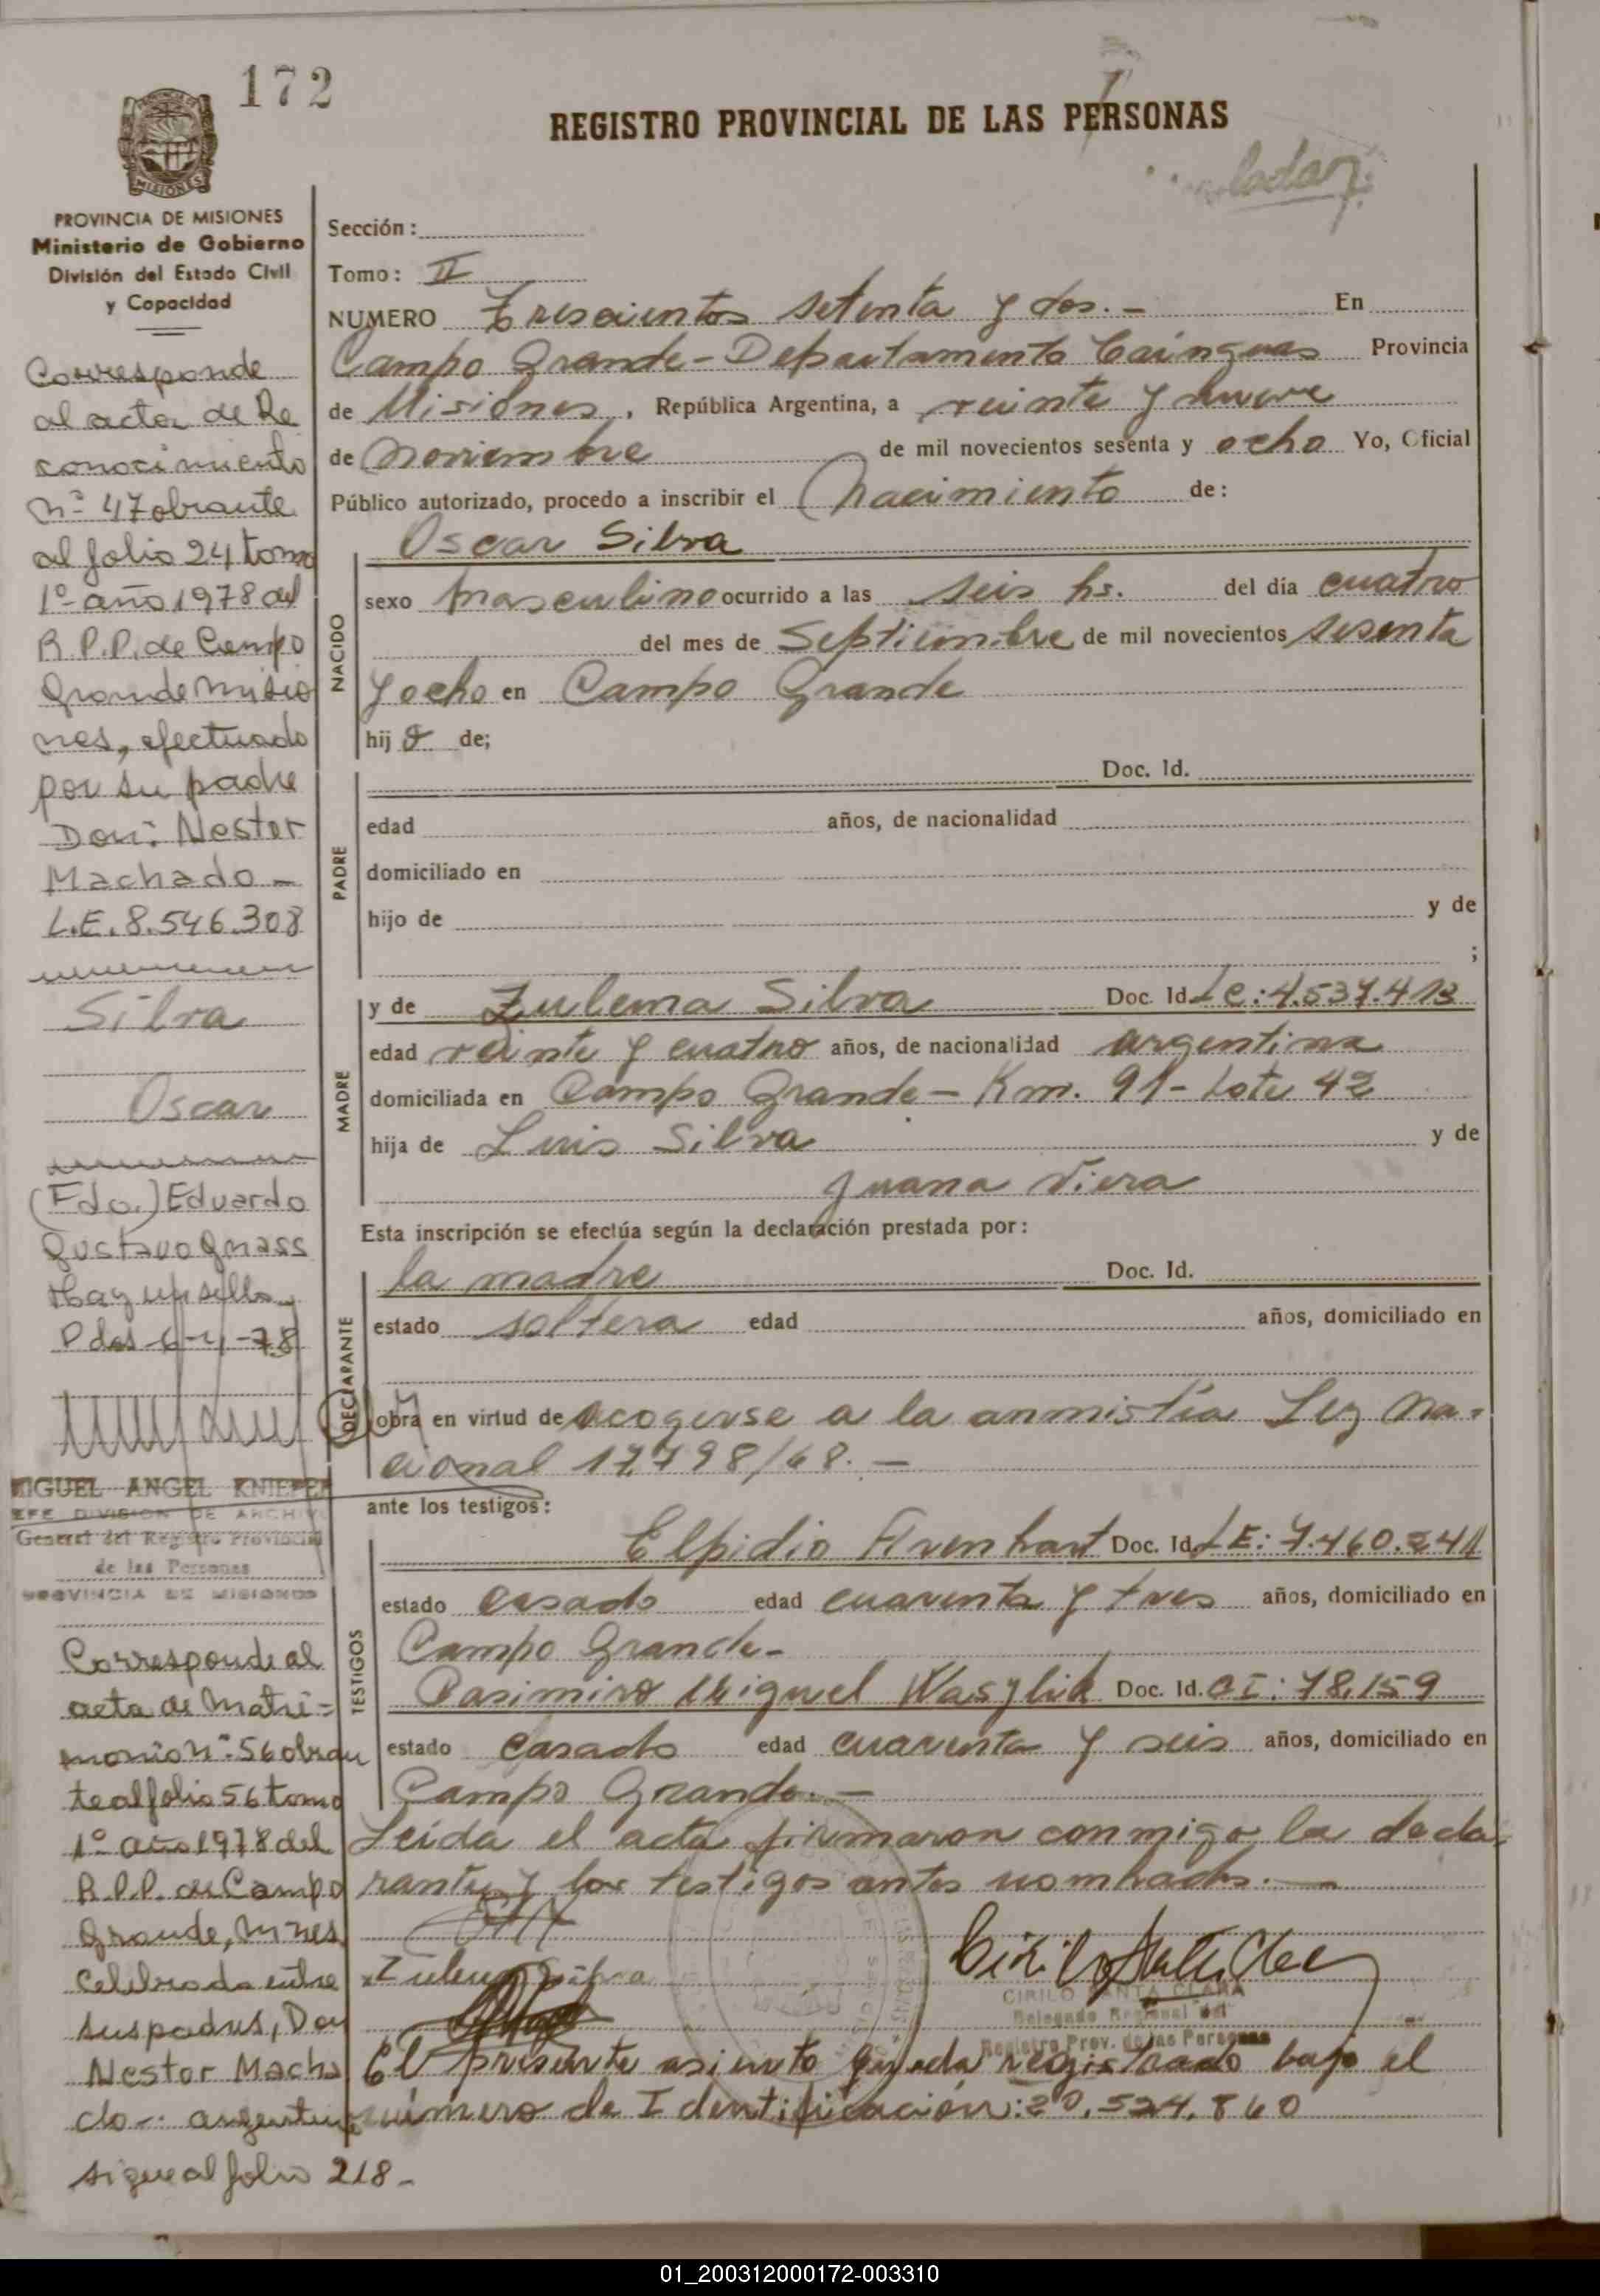 172
REGISTRO PROVINCIAL DE LAS PERSONAS
PROVINCIA DE MISIONES
Ministerio de Gobierno
División del Estado Civil
y Capacidad
Corresponde
al acta de Re
conocimiento
Nº 47 obrante
al folio 24 tomo
1º año 1978 del
R.P.P. de Campo
Grande Misio
nes, efectuado
por su padre
Don: Nestor
Machado -
L.E. 8.546.308
Silva
Oscar
(Fdo.) Eduardo
Gustavo Gnass
Hay un sello
P das 6-4-78
MIGUEL ANGEL
JEFE DIVISION DE ARCHIVO
General del Registro Provincial
de las Personas
PROVINCIA DE MISIONES
Corresponde al
acta de Matri-
monio Nº 56 obran
te al folio 56 tomo
1º año 1978 del
R.P.P. de Campo
Grande, Mnes
Celebrado entre
sus padres, Don
Nestor Macha
do -: argentino
sigue al folio 218-
Sección:
Tomo: II
NUMERO Trescientos setenta y dos.- En
Campo Grande - Departamento Cainguas Provincia
de Misiones, República Argentina, a veinte y nueve
de noviembre de mil novecientos sesenta y ocho Yo, Oficial
Público autorizado, procedo a inscribir el Nacimiento de:
Oscar Silva
NACIDO
sexo masculino ocurrido a las seis hs. del día cuatro
del mes de Septiembre de mil novecientos sesenta
y ocho en Campo Grande
hij o de;
PADRE
Doc. Id.
edad años, de nacionalidad
domiciliado en
hijo de y de
;
MADRE
y de Zulema Silva Doc. Id. Lc: 4.537.413
edad veinte y cuatro años, de nacionalidad argentina
domiciliada en Campo Grande - Km. 91 - Lote 42
hija de Luis Silva y de
Juana Viera
Esta inscripción se efectúa según la declaración prestada por:
DECLARANTE
la madre Doc. Id.
estado soltera edad años, domiciliado en
obra en virtud de acogerse a la anmistía Ley Na-
cional 17.798/68.-
ante los testigos:
TESTIGOS
Elpidio Doc. Id. LE: 7.460.241
estado casado edad cuarenta y tres años, domiciliado en
Campo Grande-
Casimiro Miguel Wasylik Doc. Id. CI: 78.159
estado casado edad cuarenta y seis años, domiciliado en
Campo Grande.-
Leída el acta firmaron conmigo la decla
rante y los testigos antes nombrados.-
Zulema Silva
CIRILO SANTA CLARA
Delegado Regional del
Registro Prov. de las Personas
El presente asiento queda registrado bajo el
número de Identificación: 20.524.860
01_200312000172-003310